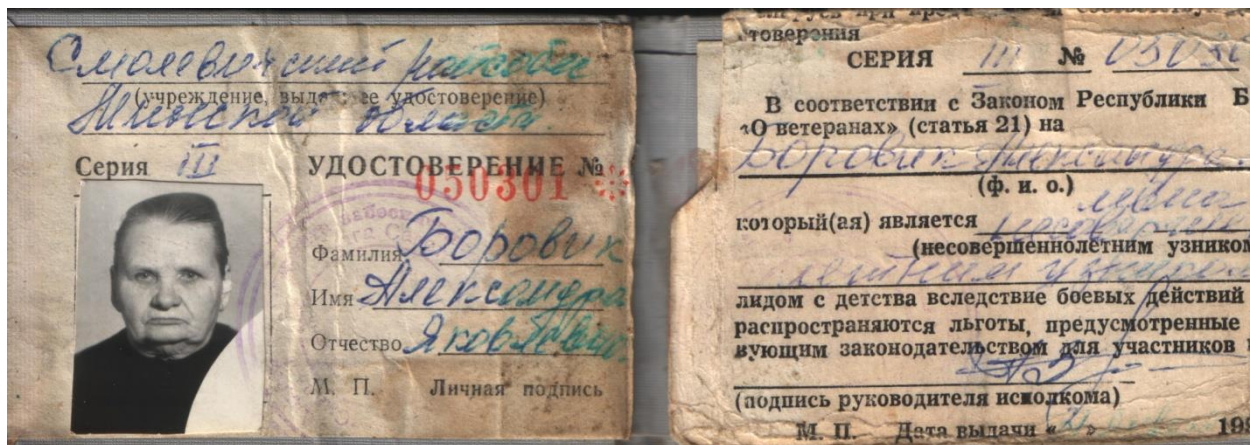 Смолевичский райсобес
(учреждение, выдавшее удостоверение)
Минской области
Серия III
УДОСТОВЕРЕНИЕ №
050301
Фамилия Боровик
Имя Александра
Отчество Яковлевна
М. П. Личная подпись
стоверения
СЕРИЯ III № 05030
В соответствии с Законом Республики Б
«О ветеранах» (статья 21) на
Боровик Александра
(ф. и. о.)
который(ая) является
(несовершеннолетним узником
летним узником
лидом с детства вследствие боевых действий
распространяются льготы, предусмотренные
вующим законодательством для участников
(подпись руководителя исполкома)
М. П. Дата выдачи « » 199